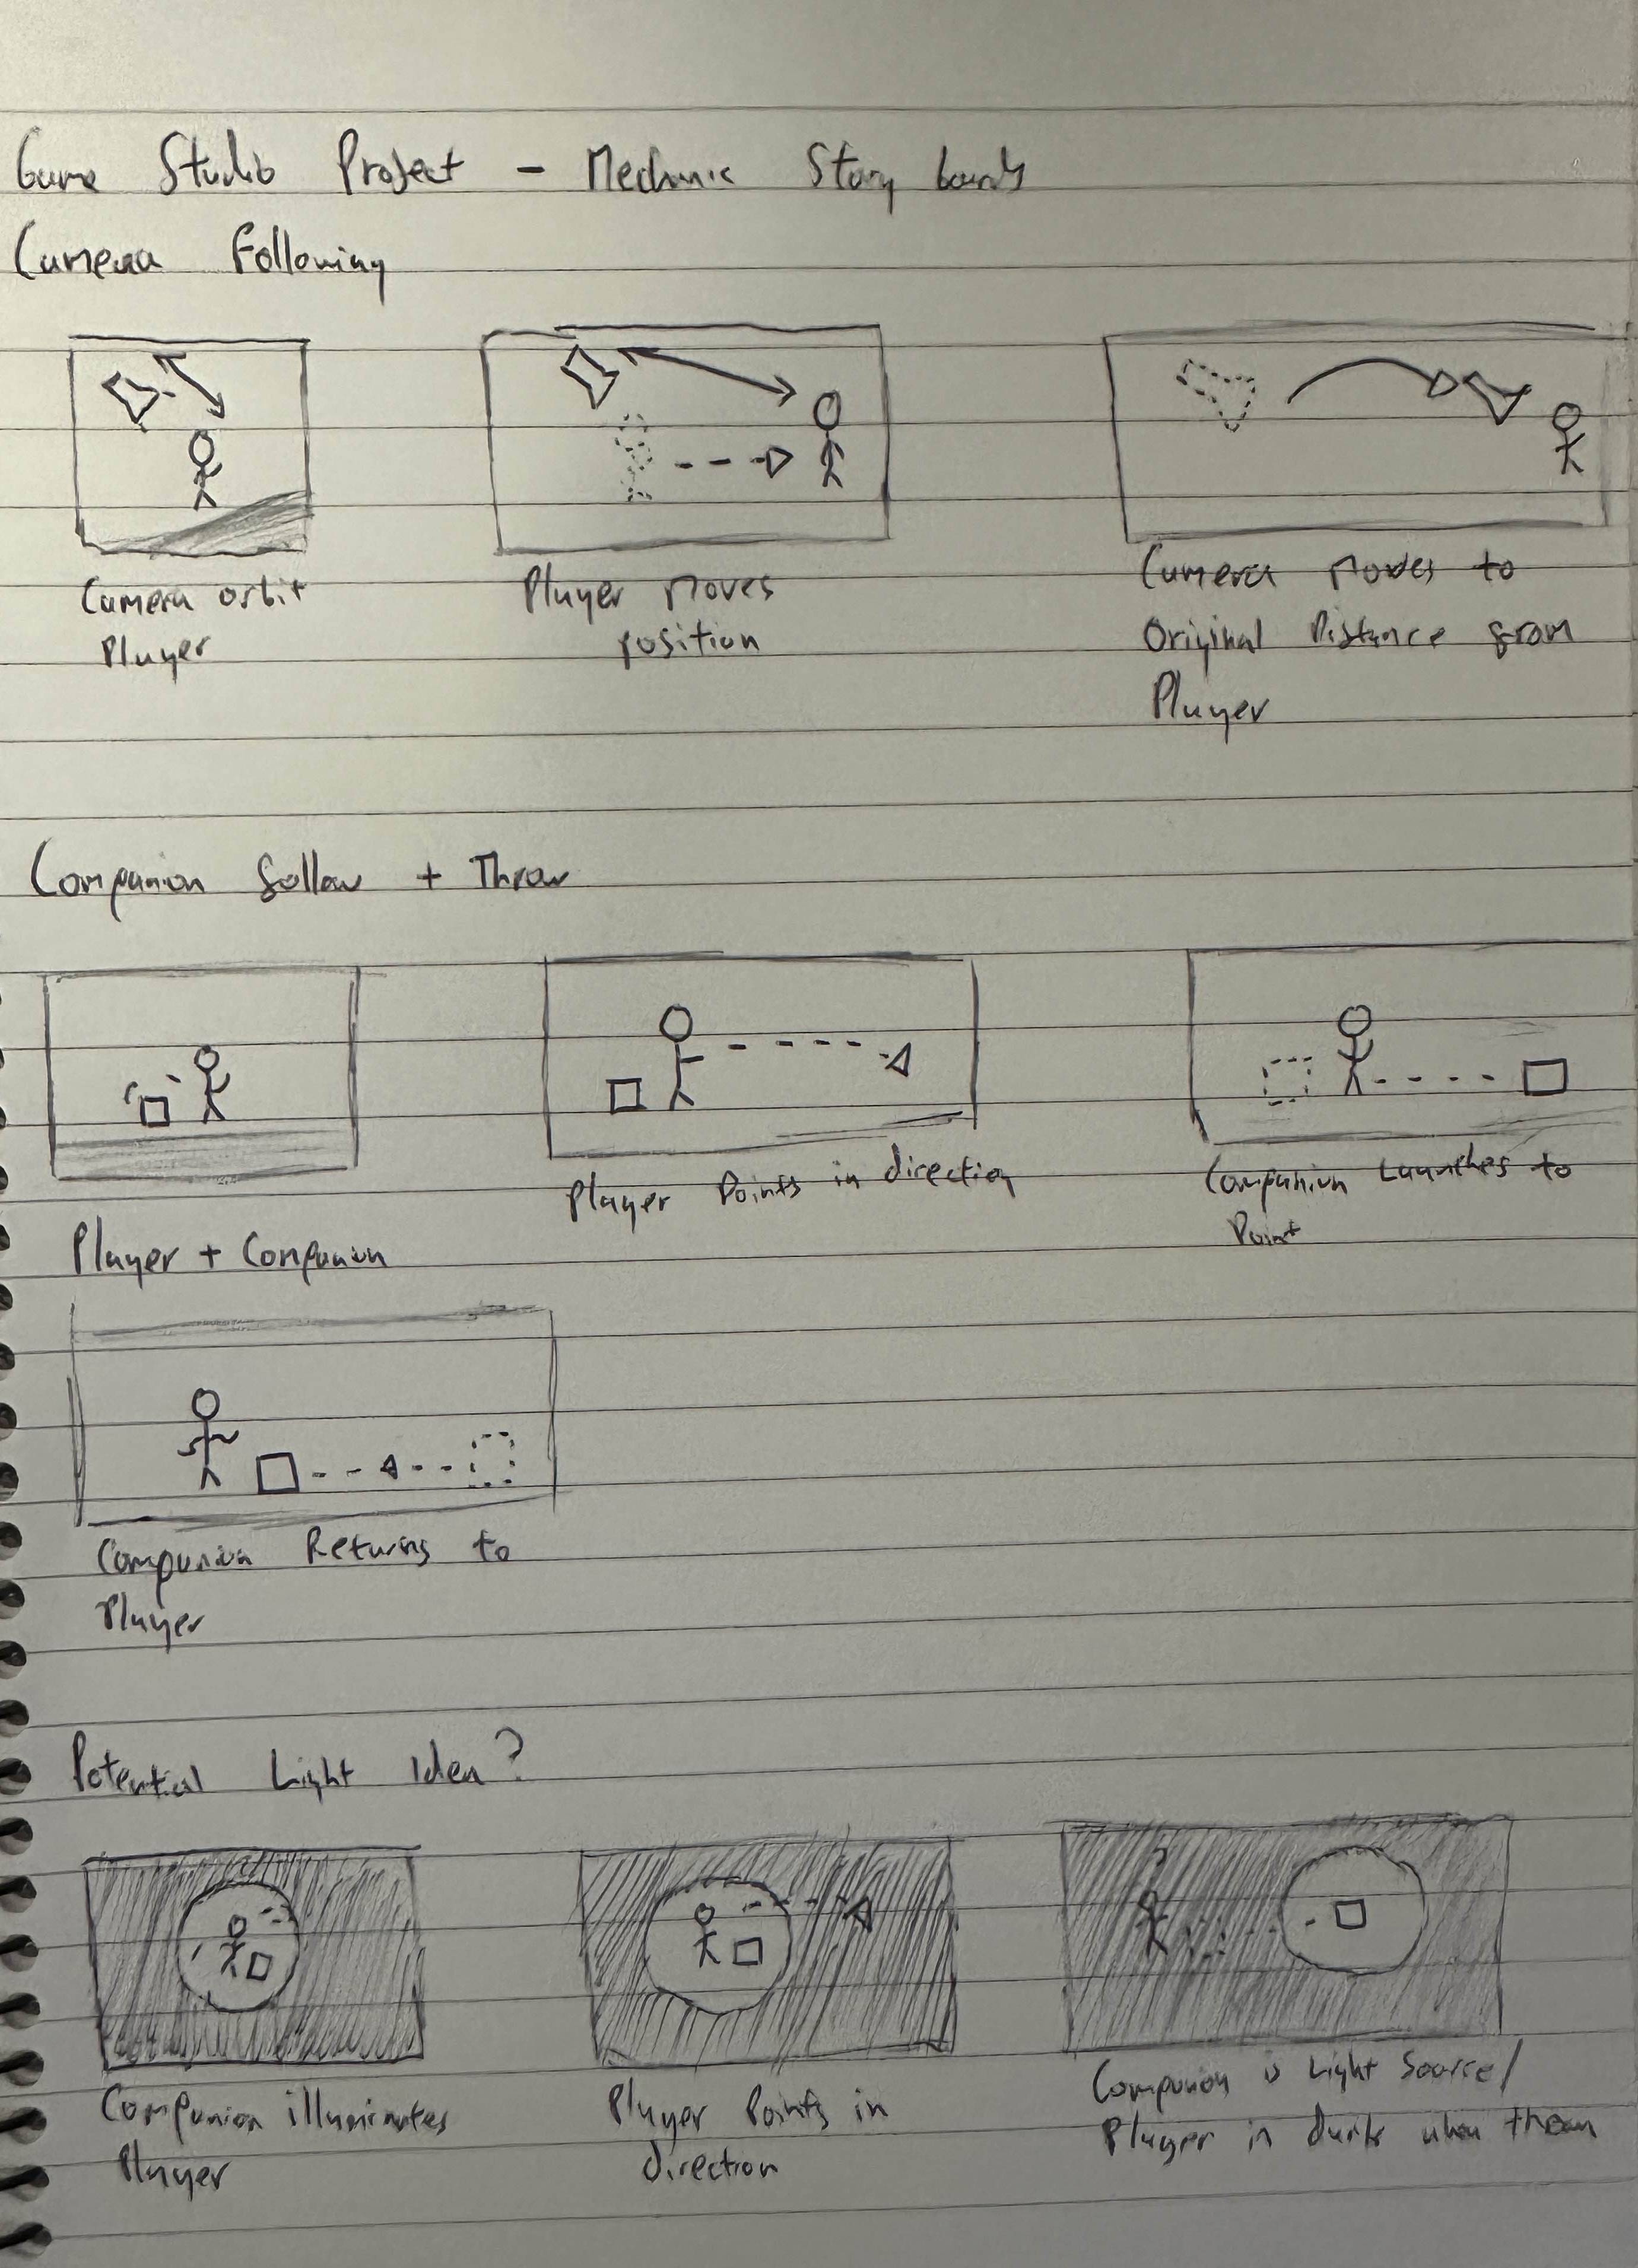 Game Studio Project - Mechanic Story boards
Camera Following
Camera orbit
Player
Player moves
position
Camera moves to
Original Distance from
Player
Companion follow + Throw
Player + Companion
Player Points in direction
Companion Launches to
Point
Companion Returns to
Player
Potential Light Idea?
Companion illuminates
Player
Player Points in
direction
Companion is Light Source/
Player in dark when thrown